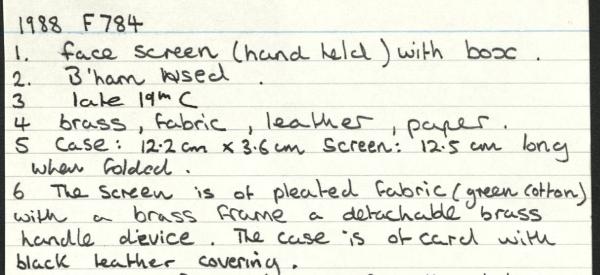 1988 F784
1. face screen (hand held) with box.
2. B'ham used.
3 late 19th C
4 brass, fabric, leather, paper.
5 Case: 12.2 cm x 3.6 cm Screen: 12.5 cm long
when folded.
6 The screen is of pleated fabric (green cotton)
with a brass frame a detachable brass
handle device. The case is of card with
black leather covering.